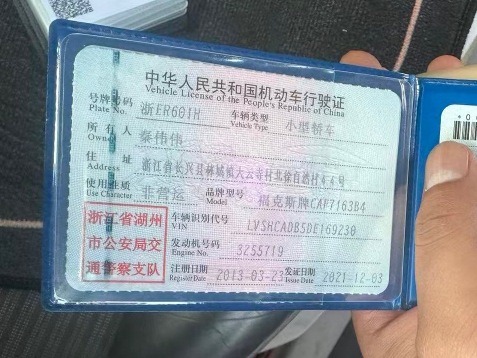 中华人民共和国机动车行驶证
Vehicle License of the People's Republic of China
号牌号码 浙ER601H 车辆类型 小型轿车
Plate No. Vehicle Type
所有人 秦伟伟
Owner
住址 浙江省长兴县林城镇大云寺村北徐自然村44号
Address
使用性质 非营运 品牌型号 福克斯牌CAF7163B4
Use Character Model
浙江省湖州
市公安局交
通警察支队
车辆识别代号 LVSHCADB5DE169230
VIN
发动机号码 3255719
Engine No.
注册日期 2013-03-23 发证日期 2021-12-03
Register Date Issue Date